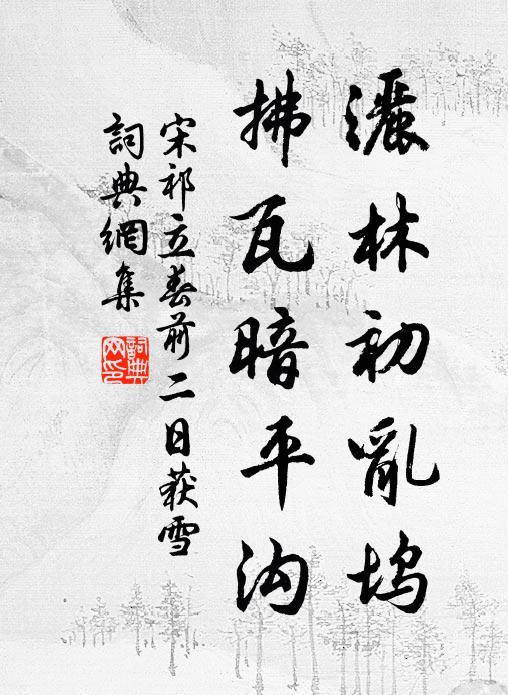 灑林初亂塢
拂瓦暗平沟
宋祁立春前二日获雪
詞典網集
詞典网印